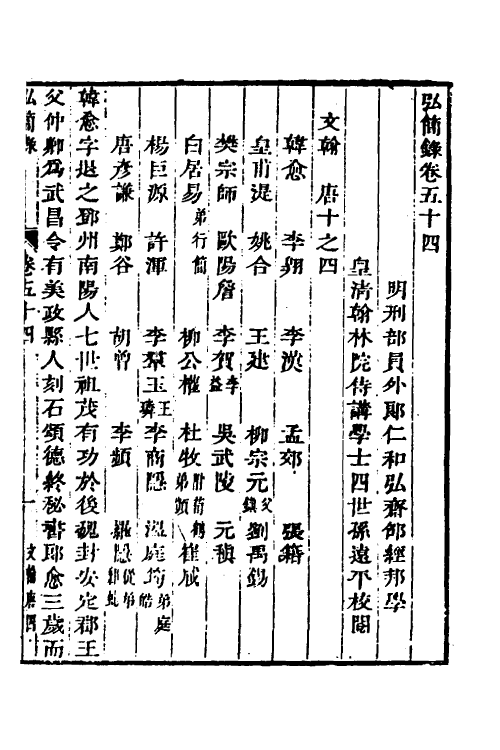 弘簡錄卷五十四
明刑部員外郎仁和弘齋邵經邦學
皇清翰林院侍講學士四世孫遠平校閱
文翰 唐十之四
韓愈 李翱 李漢 孟郊 張籍
皇甫湜 姚合 王建 柳宗元 劉禹錫
樊宗師 歐陽詹 李賀 李益 吳武陵 元稹
白居易 弟行簡 柳公權 杜牧 弟顗 崔咸
楊巨源 許渾 李羣玉 李商隱 溫庭筠 弟庭皓
唐彥謙 鄭谷 胡曾 李頻 羅隱
韓愈字退之鄧州南陽人七世祖茂有功於後魏封安定郡王
父仲卿爲武昌令有美政縣人刻石頌德終秘書郎愈三歲而
弘簡錄 卷五十四 一 文翰唐四